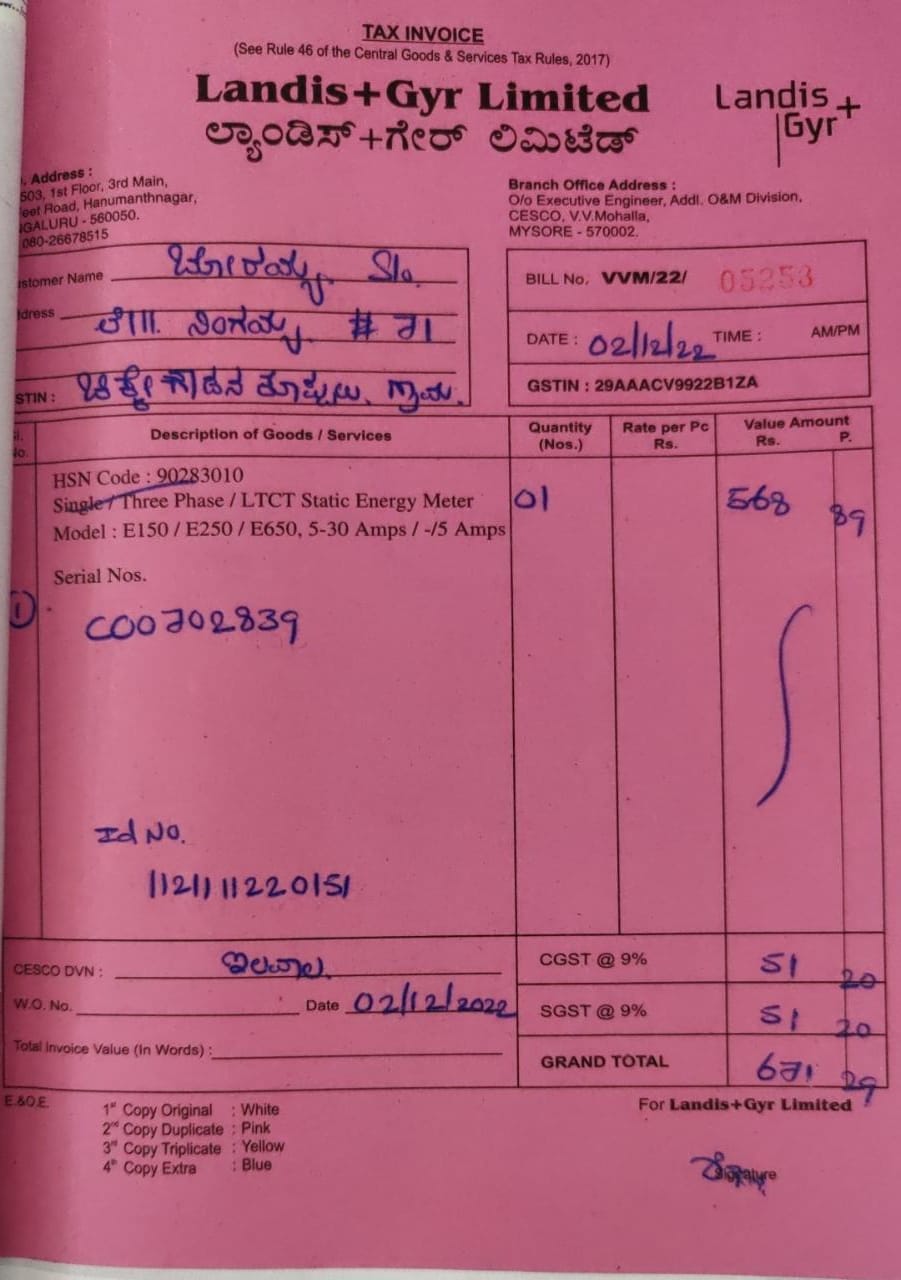 TAX INVOICE
(See Rule 46 of the Central Goods & Services Tax Rules, 2017)
Landis+Gyr Limited
ಲ್ಯಾಂಡಿಸ್+ಗೇರ್ ಲಿಮಿಟೆಡ್
Landis+
Gyr
. Address :
503, 1st Floor, 3rd Main,
eet Road, Hanumanthnagar,
GALURU - 560050.
080-26678515
Branch Office Address :
O/o Executive Engineer, Addl. O&M Division,
CESCO, V.V.Mohalla,
MYSORE - 570002.
stomer Name ಬೋರಯ್ಯ S/o.
dress ಲೇ||. ನಿಂಗಯ್ಯ # 71
STIN : ಚಿಕ್ಕೇಗೌಡನ ಕೊಪ್ಪಲು. ಗ್ರಾಮ.
BILL No. VVM/22/ 05253
DATE : 02/12/22 TIME : AM/PM
GSTIN : 29AAACV9922B1ZA
l. No. Description of Goods / Services Quantity (Nos.) Rate per Pc Rs. Value Amount Rs. P.
HSN Code : 90283010
Single / Three Phase / LTCT Static Energy Meter 01 568 89
Model : E150 / E250 / E650, 5-30 Amps / -/5 Amps
Serial Nos.
1
C00702839
Id No.
1121111220151
CESCO DVN : ಇಲವಾಲ
CGST @ 9% 51 20
W.O. No. Date 02/12/2022
SGST @ 9% 51 20
Total Invoice Value (In Words) :
GRAND TOTAL 671 29
E.&O.E.
For Landis+Gyr Limited
1st Copy Original : White
2nd Copy Duplicate : Pink
3rd Copy Triplicate : Yellow
4th Copy Extra : Blue
Signature